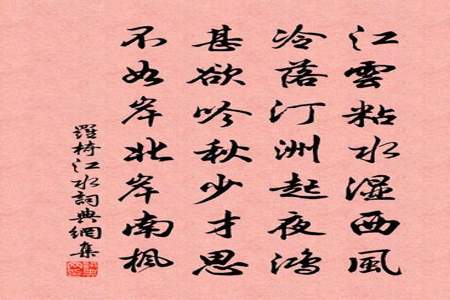 江雲粘水湿西風
冷落汀洲起夜鴻
甚欲吟秋少才思
不如岸北岸南楓
羅椅江水詞典網集